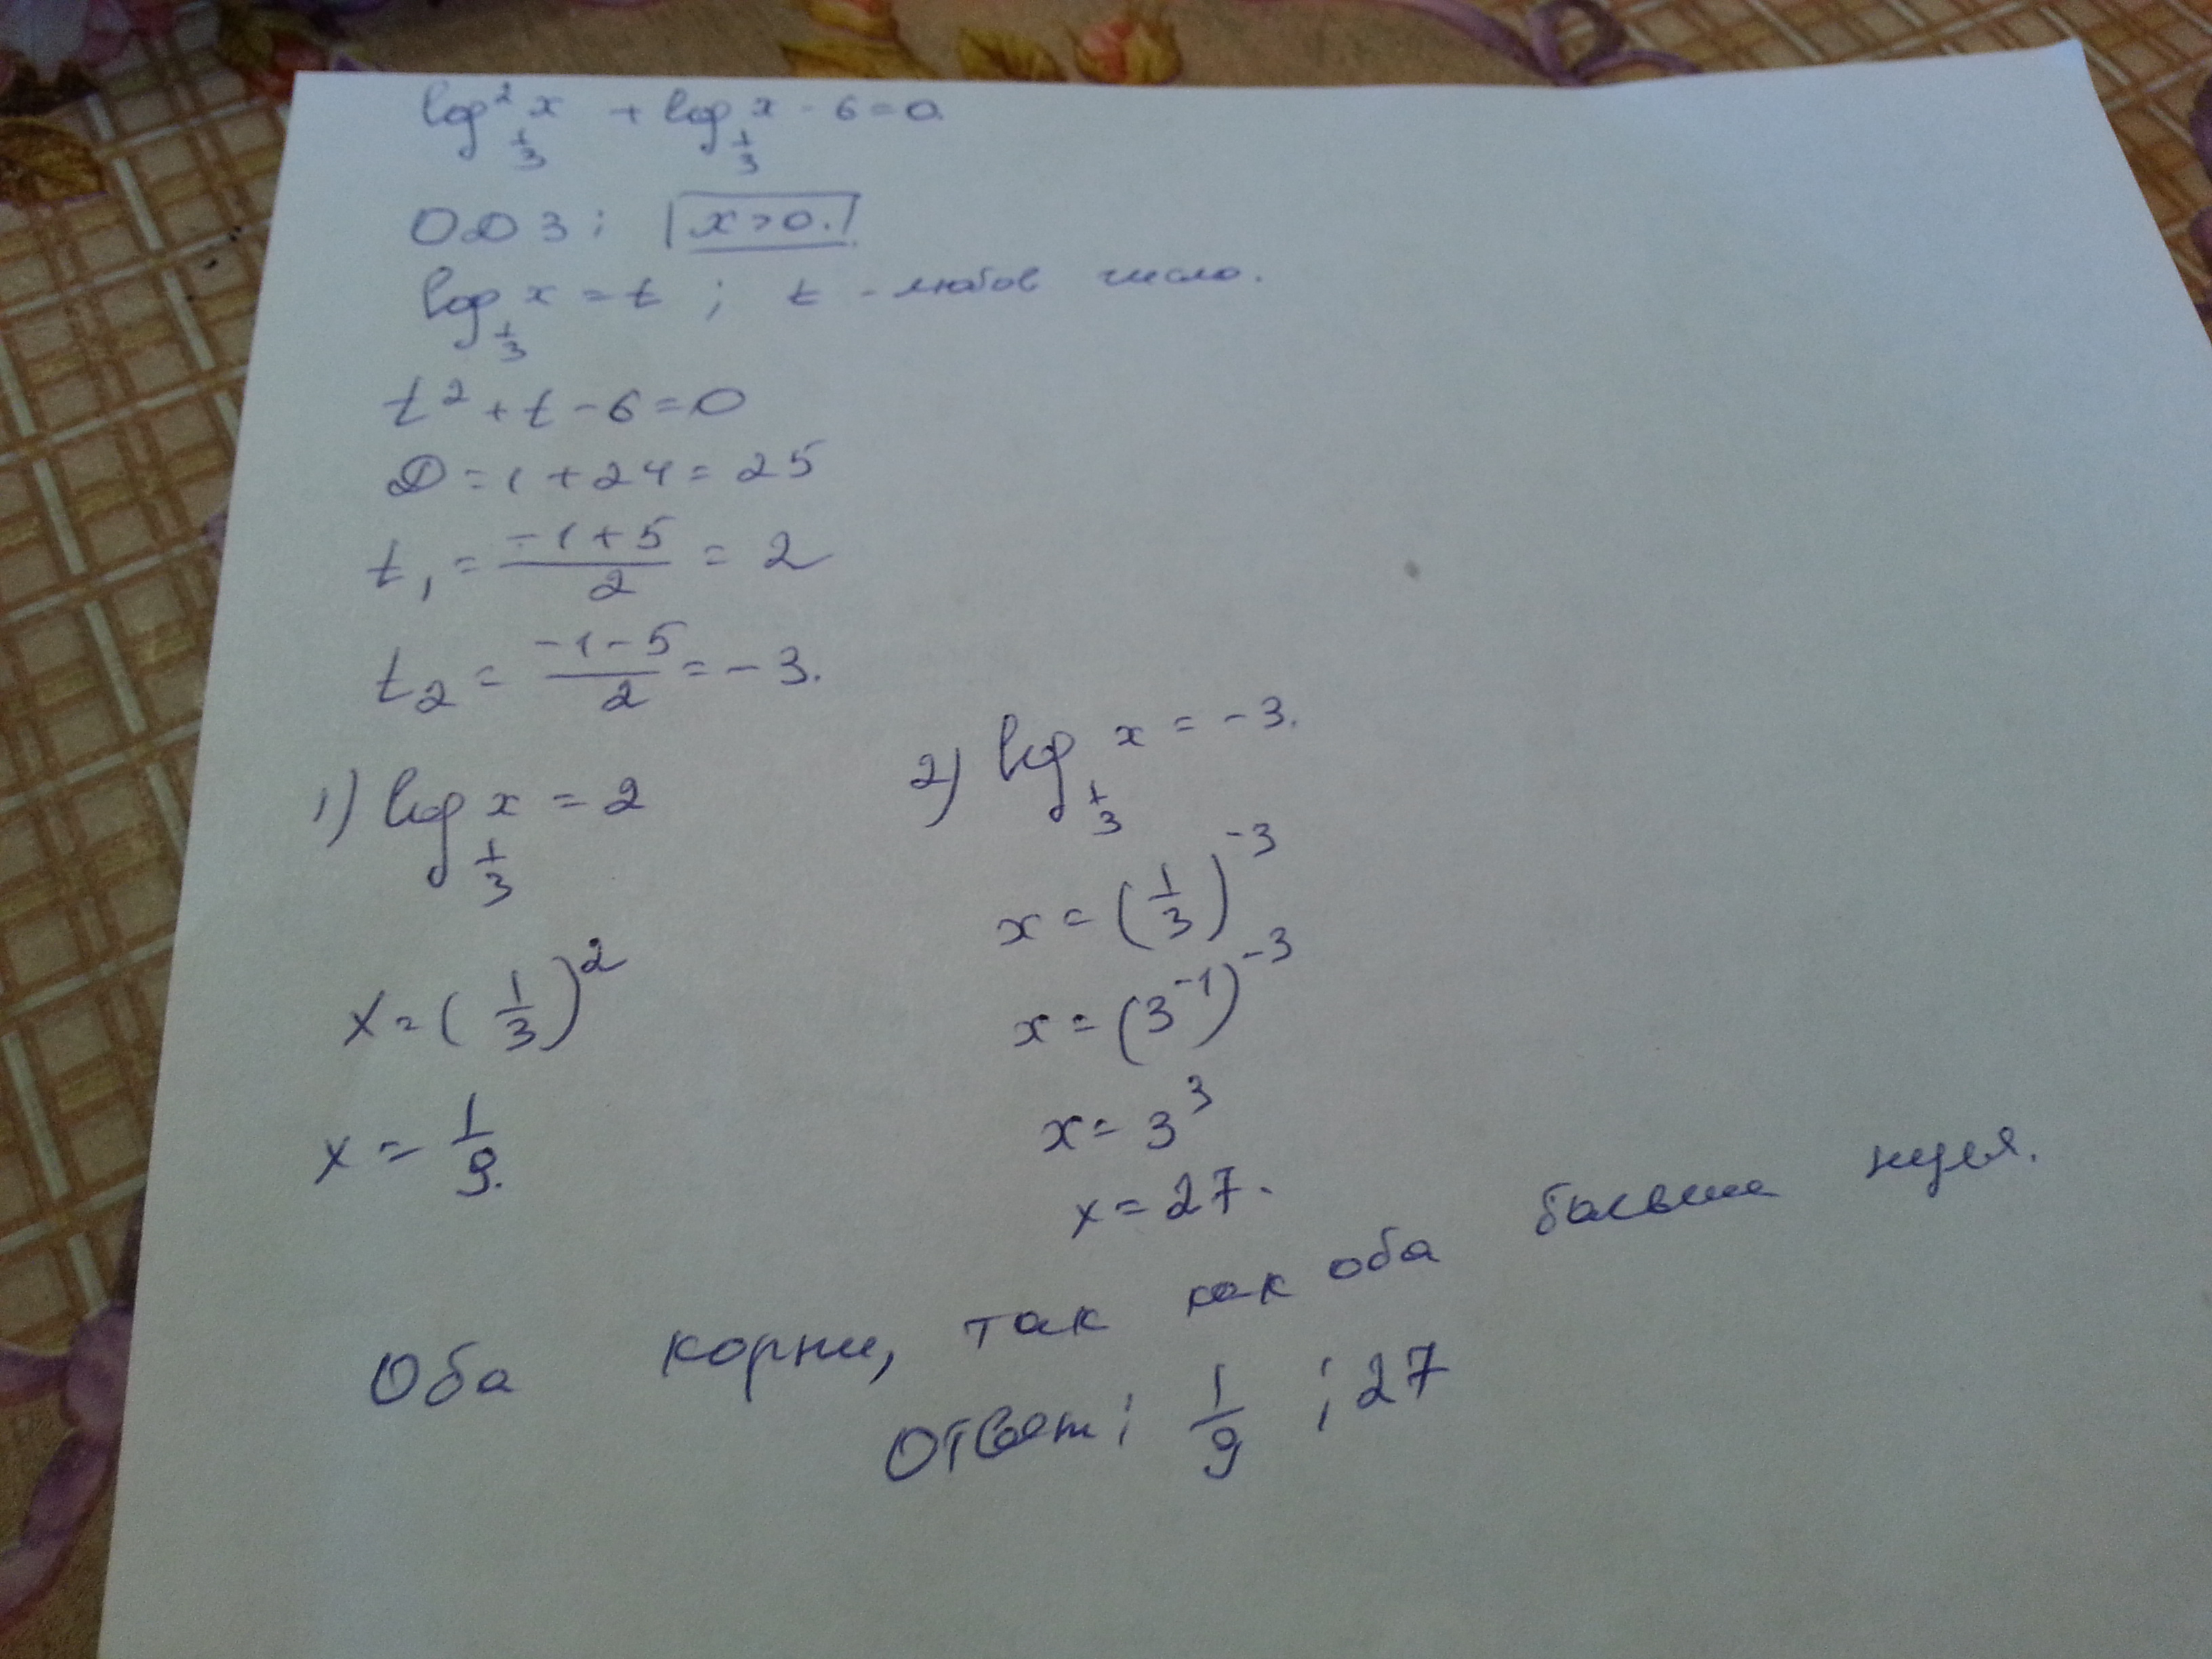 log²_{1/3} x + log_{1/3} x - 6 = 0.
ОДЗ: x > 0.
log_{1/3} x = t ; t - любое число.
t² + t - 6 = 0
D = 1 + 24 = 25
t₁ = (-1+5)/2 = 2
t₂ = (-1-5)/2 = -3.
1) log_{1/3} x = 2
x = (1/3)²
x = 1/9.
2) log_{1/3} x = -3.
x = (1/3)⁻³
x = (3⁻¹)⁻³
x = 3³
x = 27.
Оба корни, так как оба больше нуля.
Ответ: 1/9 ; 27